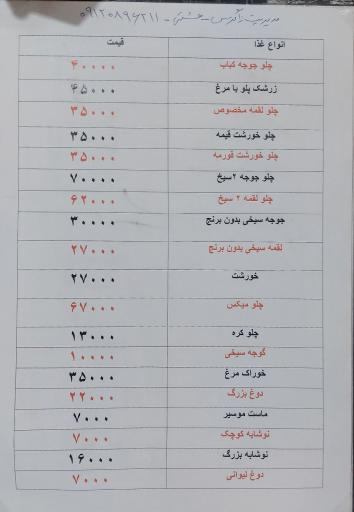 مدیریت زاگرس - ۰۹۱۲۰۸۹۶۲۱۱
انواع غذا قیمت
چلو جوجه کباب ۴۰۰۰۰
زرشک پلو با مرغ ۴۵۰۰۰
چلو لقمه مخصوص ۳۵۰۰۰
چلو خورشت قیمه ۳۵۰۰۰
چلو خورشت قورمه ۳۵۰۰۰
چلو جوجه ۲سیخ ۷۰۰۰۰
چلو لقمه ۲ سیخ ۶۲۰۰۰
جوجه سیخی بدون برنج ۳۰۰۰۰
لقمه سیخی بدون برنج ۲۷۰۰۰
خورشت ۲۷۰۰۰
چلو میکس ۶۷۰۰۰
چلو کره ۱۳۰۰۰
گوجه سیخی ۱۰۰۰۰
خوراک مرغ ۳۵۰۰۰
دوغ بزرگ ۲۲۰۰۰
ماست موسیر ۷۰۰۰
نوشابه کوچک ۷۰۰۰
نوشابه بزرگ ۱۶۰۰۰
دوغ لیوانی ۷۰۰۰